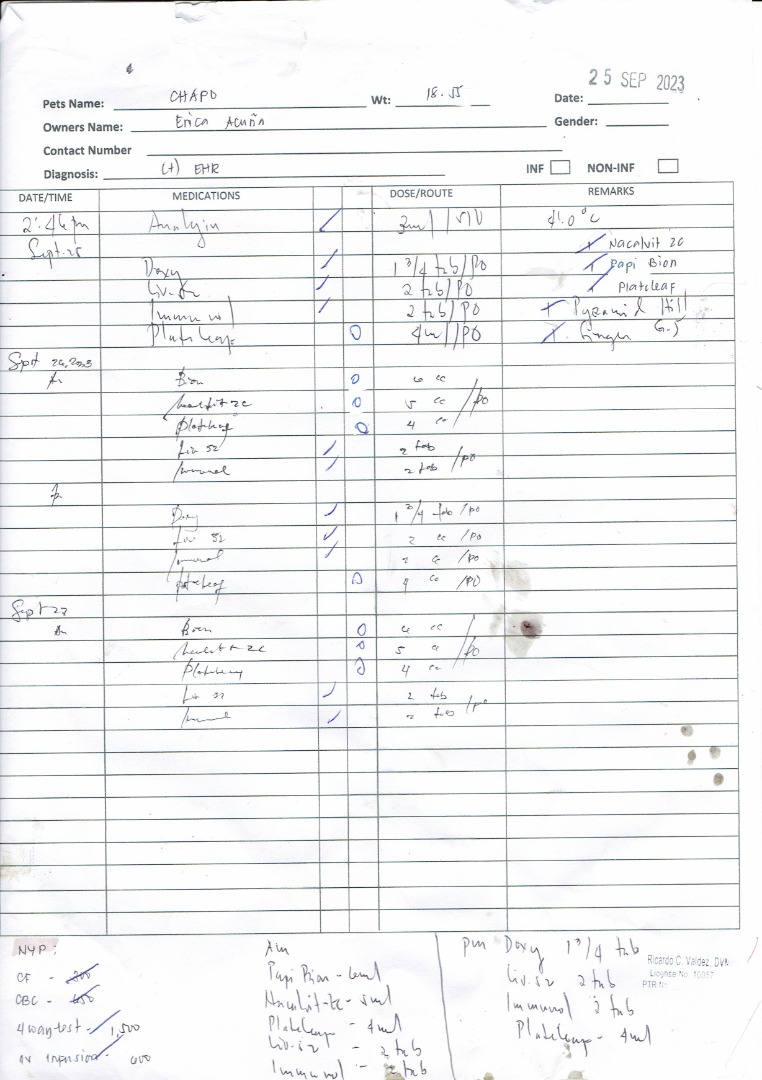 25 SEP 2023
Pets Name: CHAPO Wt: 18.55 Date:
Owners Name: Erica Acuña Gender:
Contact Number
Diagnosis: (+) EHR INF NON-INF
DATE/TIME MEDICATIONS DOSE/ROUTE REMARKS
2:46pm Analgin 3ml / SIV 41.0°C
Sept. 25 Nacalvit 2C
Doxy 1 3/4 tab/PO Papi Bion
Liv. 52 2 tab/PO Plateleaf
Immunol 2 tab/PO Pyramid Hill
Plateleaf 4ml/PO Ginger G-5
Sept 26, 2023
Bion 6 cc
nacalvit 2C 5 cc /po
plateleaf 4 cc
Liv 52 2 tab
Immunol 2 tab /po
Doxy 1 3/4 tab /po
Liv 52 2 cc /po
Immunol 2 cc /po
plateleaf 4 cc /po
Sept 27
Bion 6 cc
nacalvit 2C 5 cc /po
Plateleaf 4 cc
Liv 52 2 tab
Immunol 2 tab /po
NYP:
CF - 300
CBC - 650
4 way test - 1,500
IV infusion - 600
Am
Papi Bion - 6ml
Nacalvit-2c - 5ml
Plateleaf - 4ml
Liv-52 - 2 tab
Immunol - 2 tab
pm Doxy 1 3/4 tab
Liv.52 2 tab
Immunol 2 tab
Plateleaf - 4ml
Ricardo C. Valdez, DVM
License No. 10057
PTR No.